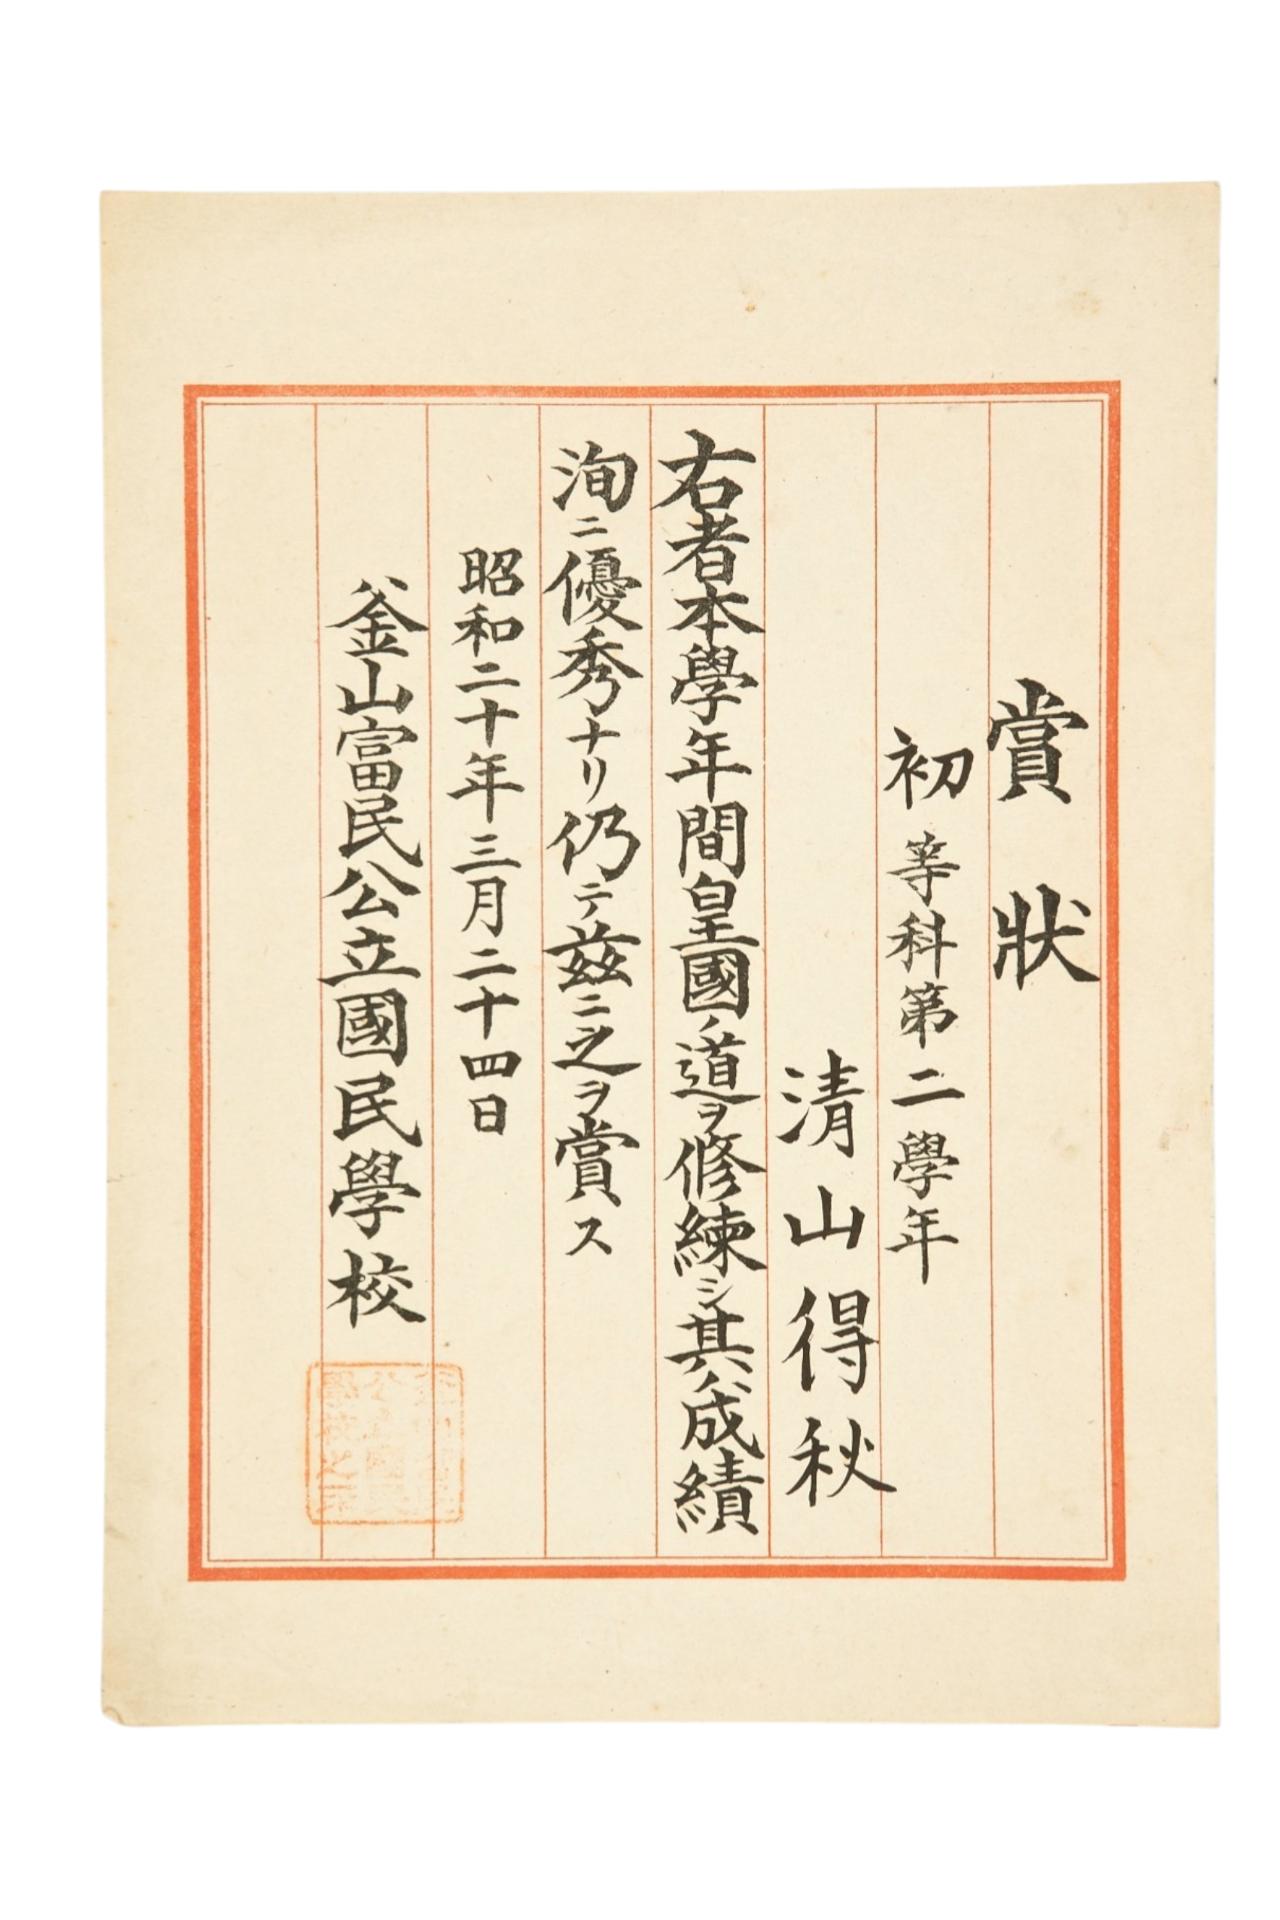 賞狀
初等科第二學年
清山得秋
右者本學年間皇國ノ道ヲ修練シ其ノ成績
洵ニ優秀ナリ仍テ茲ニ之ヲ賞ス
昭和二十年三月二十四日
釜山富民公立國民學校